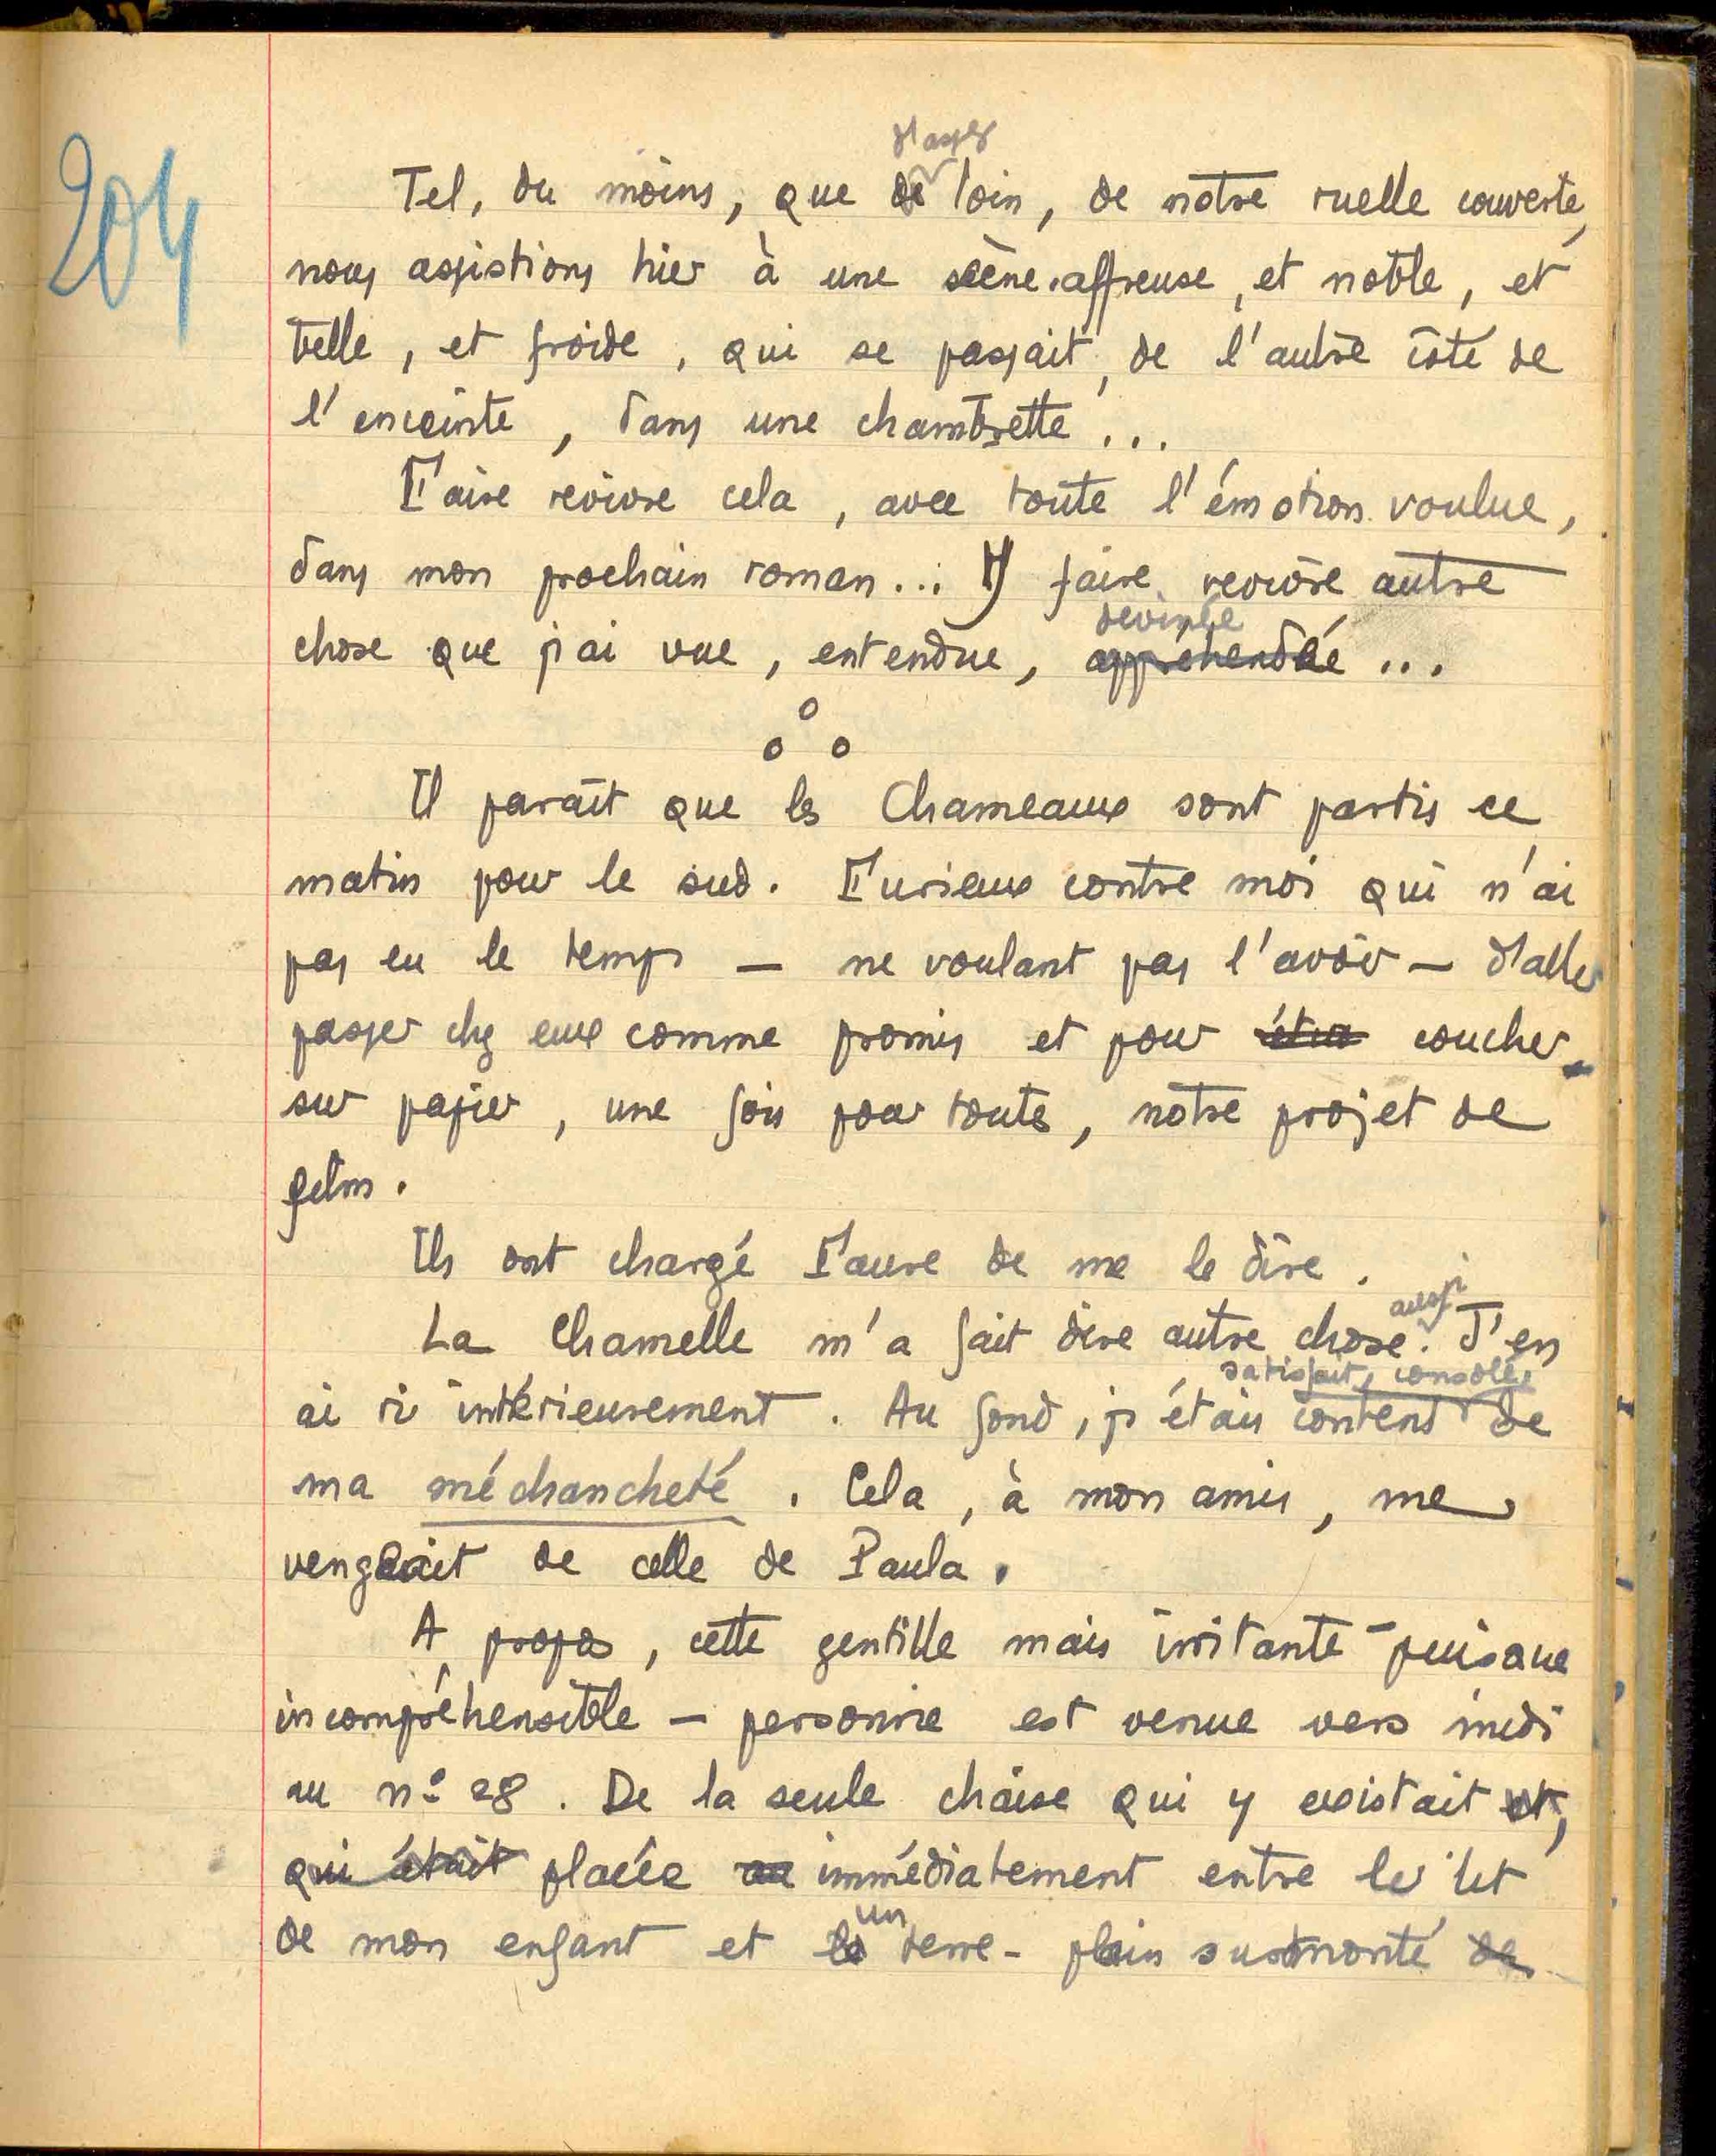 204
d'assez
Tel, du moins, que de loin, de notre ruelle couverte,
nous assistions hier à une scène affreuse, et noble, et
belle, et froide, qui se passait, de l'autre côté de
l'enceinte, dans une chambrette...
Faire revivre cela, avec toute l'émotion voulue,
dans mon prochain roman... Y faire revivre autre
devinée
chose que j'ai vue, entendue, appréhendée...
o
o o
Il paraît que les Chameaux sont partis ce
matin pour le sud. Furieux contre moi qui n'ai
pas eu le temps — ne voulant pas l'avoir — d'aller
passer chez eux comme promis et pour coucher
sur papier, une fois pour toutes, notre projet de
film.
Ils ont chargé Faure de me le dire.
aussi
La Chamelle m'a fait dire autre chose. J'en
satisfait, consolé
ai ri intérieurement. Au fond, j'étais content de
ma méchanceté. Cela, à mon amis, me
vengeait de celle de Paula.
A propos, cette gentille mais irritante — puisque
incompréhensible — personne est venue vers midi
au n° 28. De la seule chaise qui y existait et,
qui était placée au immédiatement entre le lit
un
de mon enfant et le terre-plein surmonté de